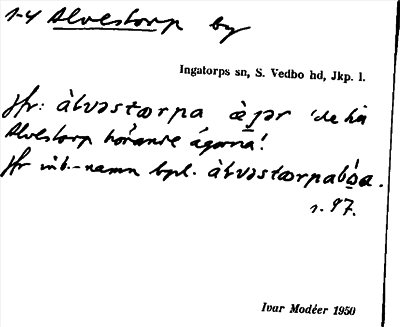 1-4 Alvestorp by
Ingatorps sn, S. Vedbo hd, Jkp. l.
Jfr: àlvəstœrpa 'de hä
Alvestorp hörande ägorna'.
Jfr inb.-namn bpl. àlvəstœrpabóa.
s. 97.
Ivar Modéer 1950